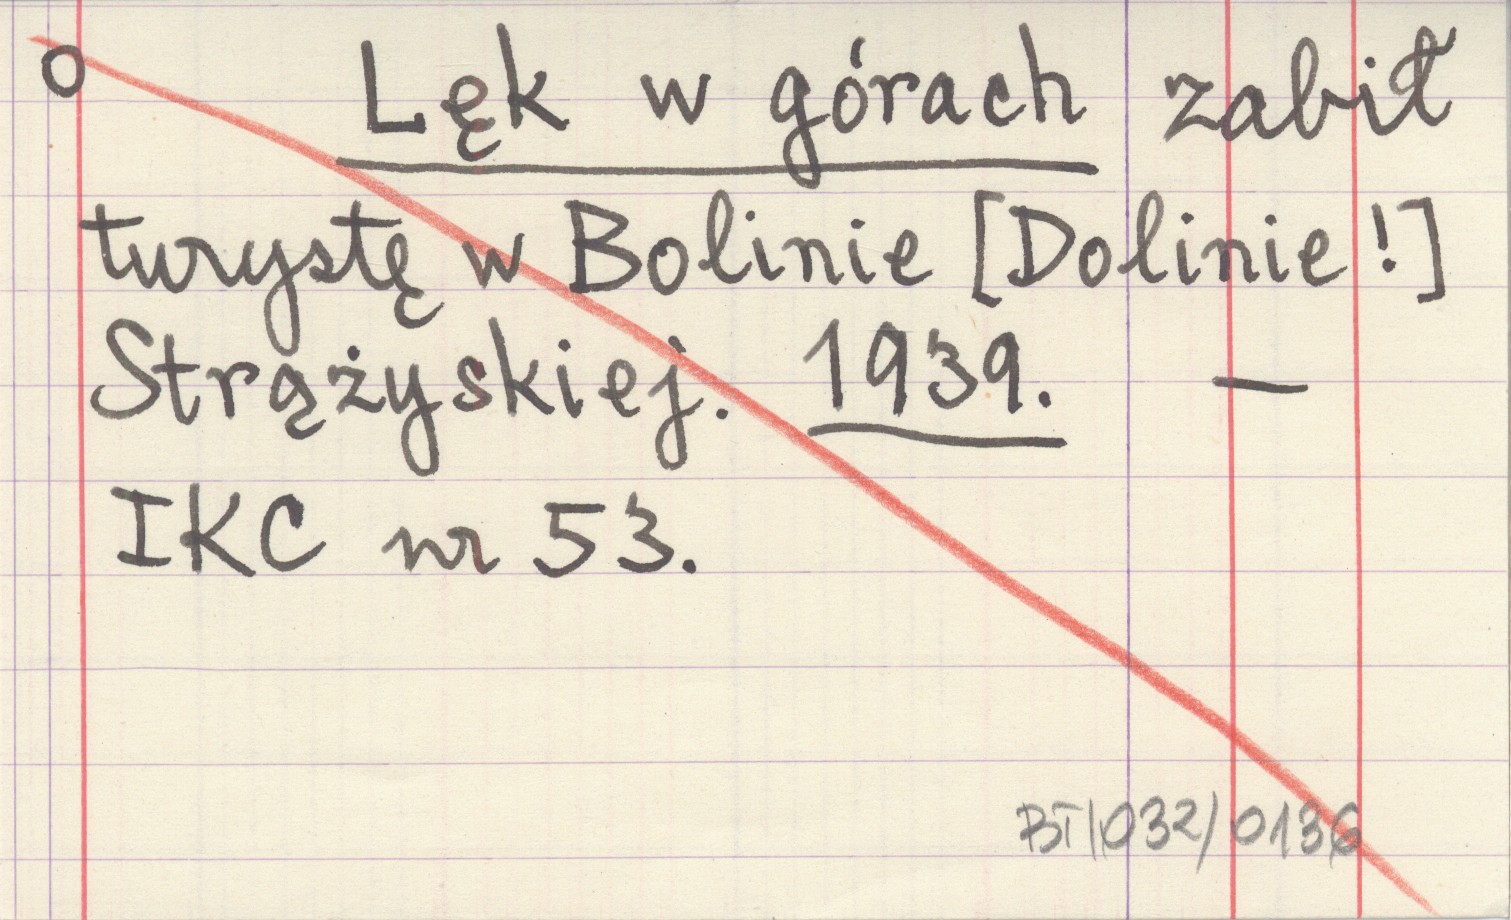 o Lęk w górach zabił
turystę w Bolinie [Dolinie!]
Strążyskiej. 1939. —
IKC nr 53.
BT/032/0136